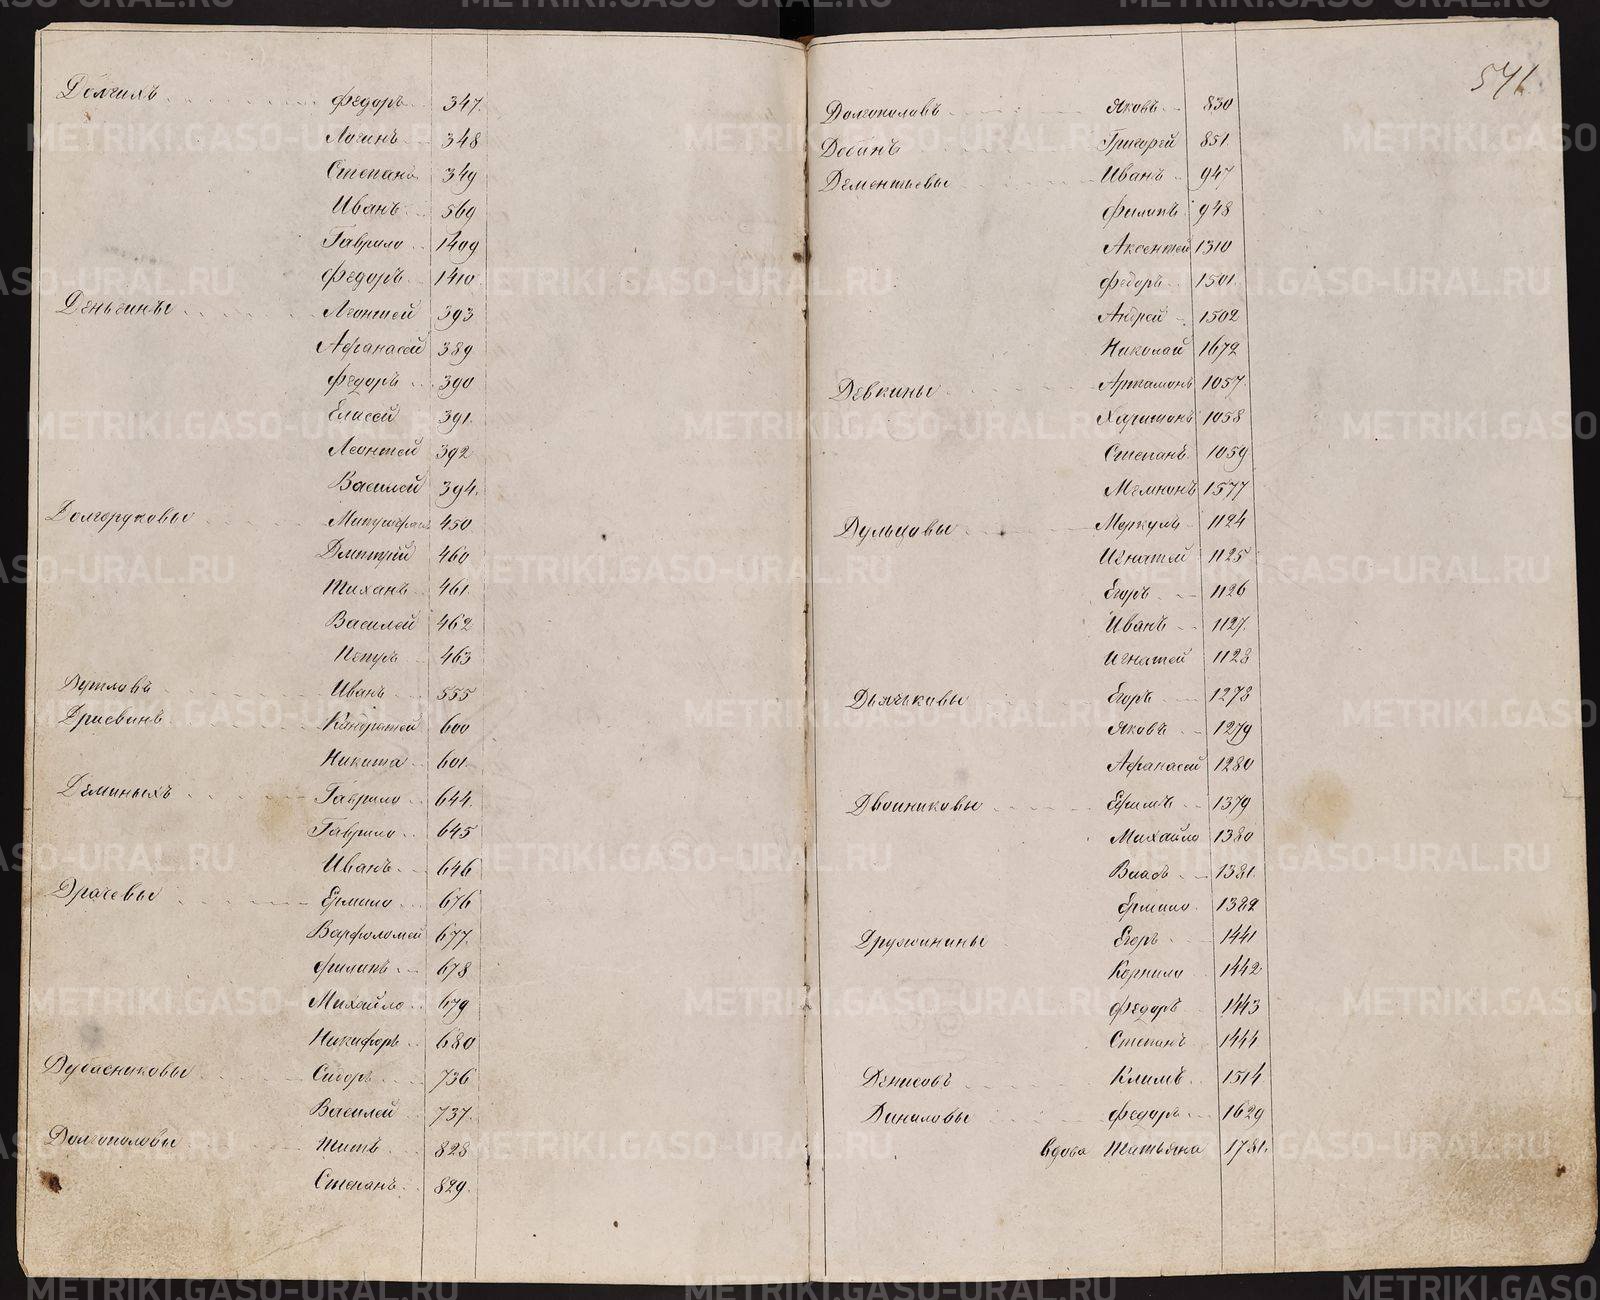 Долгихъ Федоръ 347.
Логинъ 348
Степанъ 349
Иванъ 569
Гаврило 1409
Федоръ 1410.
Деньгинъ Леонтей 393
Афанасей 389
Федоръ 390
Елисей 391.
Леонтей 392
Василей 394.
Долгоруковы 450
Дмитрій 460
Тиханъ 461.
Василей 462
463
Дутловъ Иванъ 555
Дрисвинъ Кондратей 600
Никита 601.
Деминыхъ Гаврило 644.
Гаврило 645
Иванъ 646
Драчевы Ермило 676
Варфоломей 677.
Филипъ 678
Михайло 679
Никифоръ 680
Дубасниковы Сидоръ 736
Василей 737.
Долгополовы Титъ 828
Степанъ 829.
541.
Долгополовъ Яковъ 830
Григорей 851.
Дементьевы Иванъ 947
Филипъ 948
Аксентей 1310
Федоръ 1501.
Андрей 1502
Николай 1672
Девкины Артамонъ 1057.
Харитонъ 1058
Степанъ 1059
1577
Дульцовы Меркулъ 1124
Игнатей 1125
Егоръ 1126
Иванъ 1127.
Игнатей 1128
Дьячковы Егоръ 1278
Яковъ 1279
Афанасей 1280
Двойниковы Ефимъ 1379
Михайло 1380
Власъ 1381.
Ермило 1382
Дружинины Егоръ 1441
Корнило 1442
Федоръ 1443
Степанъ 1444
Денисовъ Климъ 1514
Даниловы Федоръ 1629
вдова Татьяна 1781.